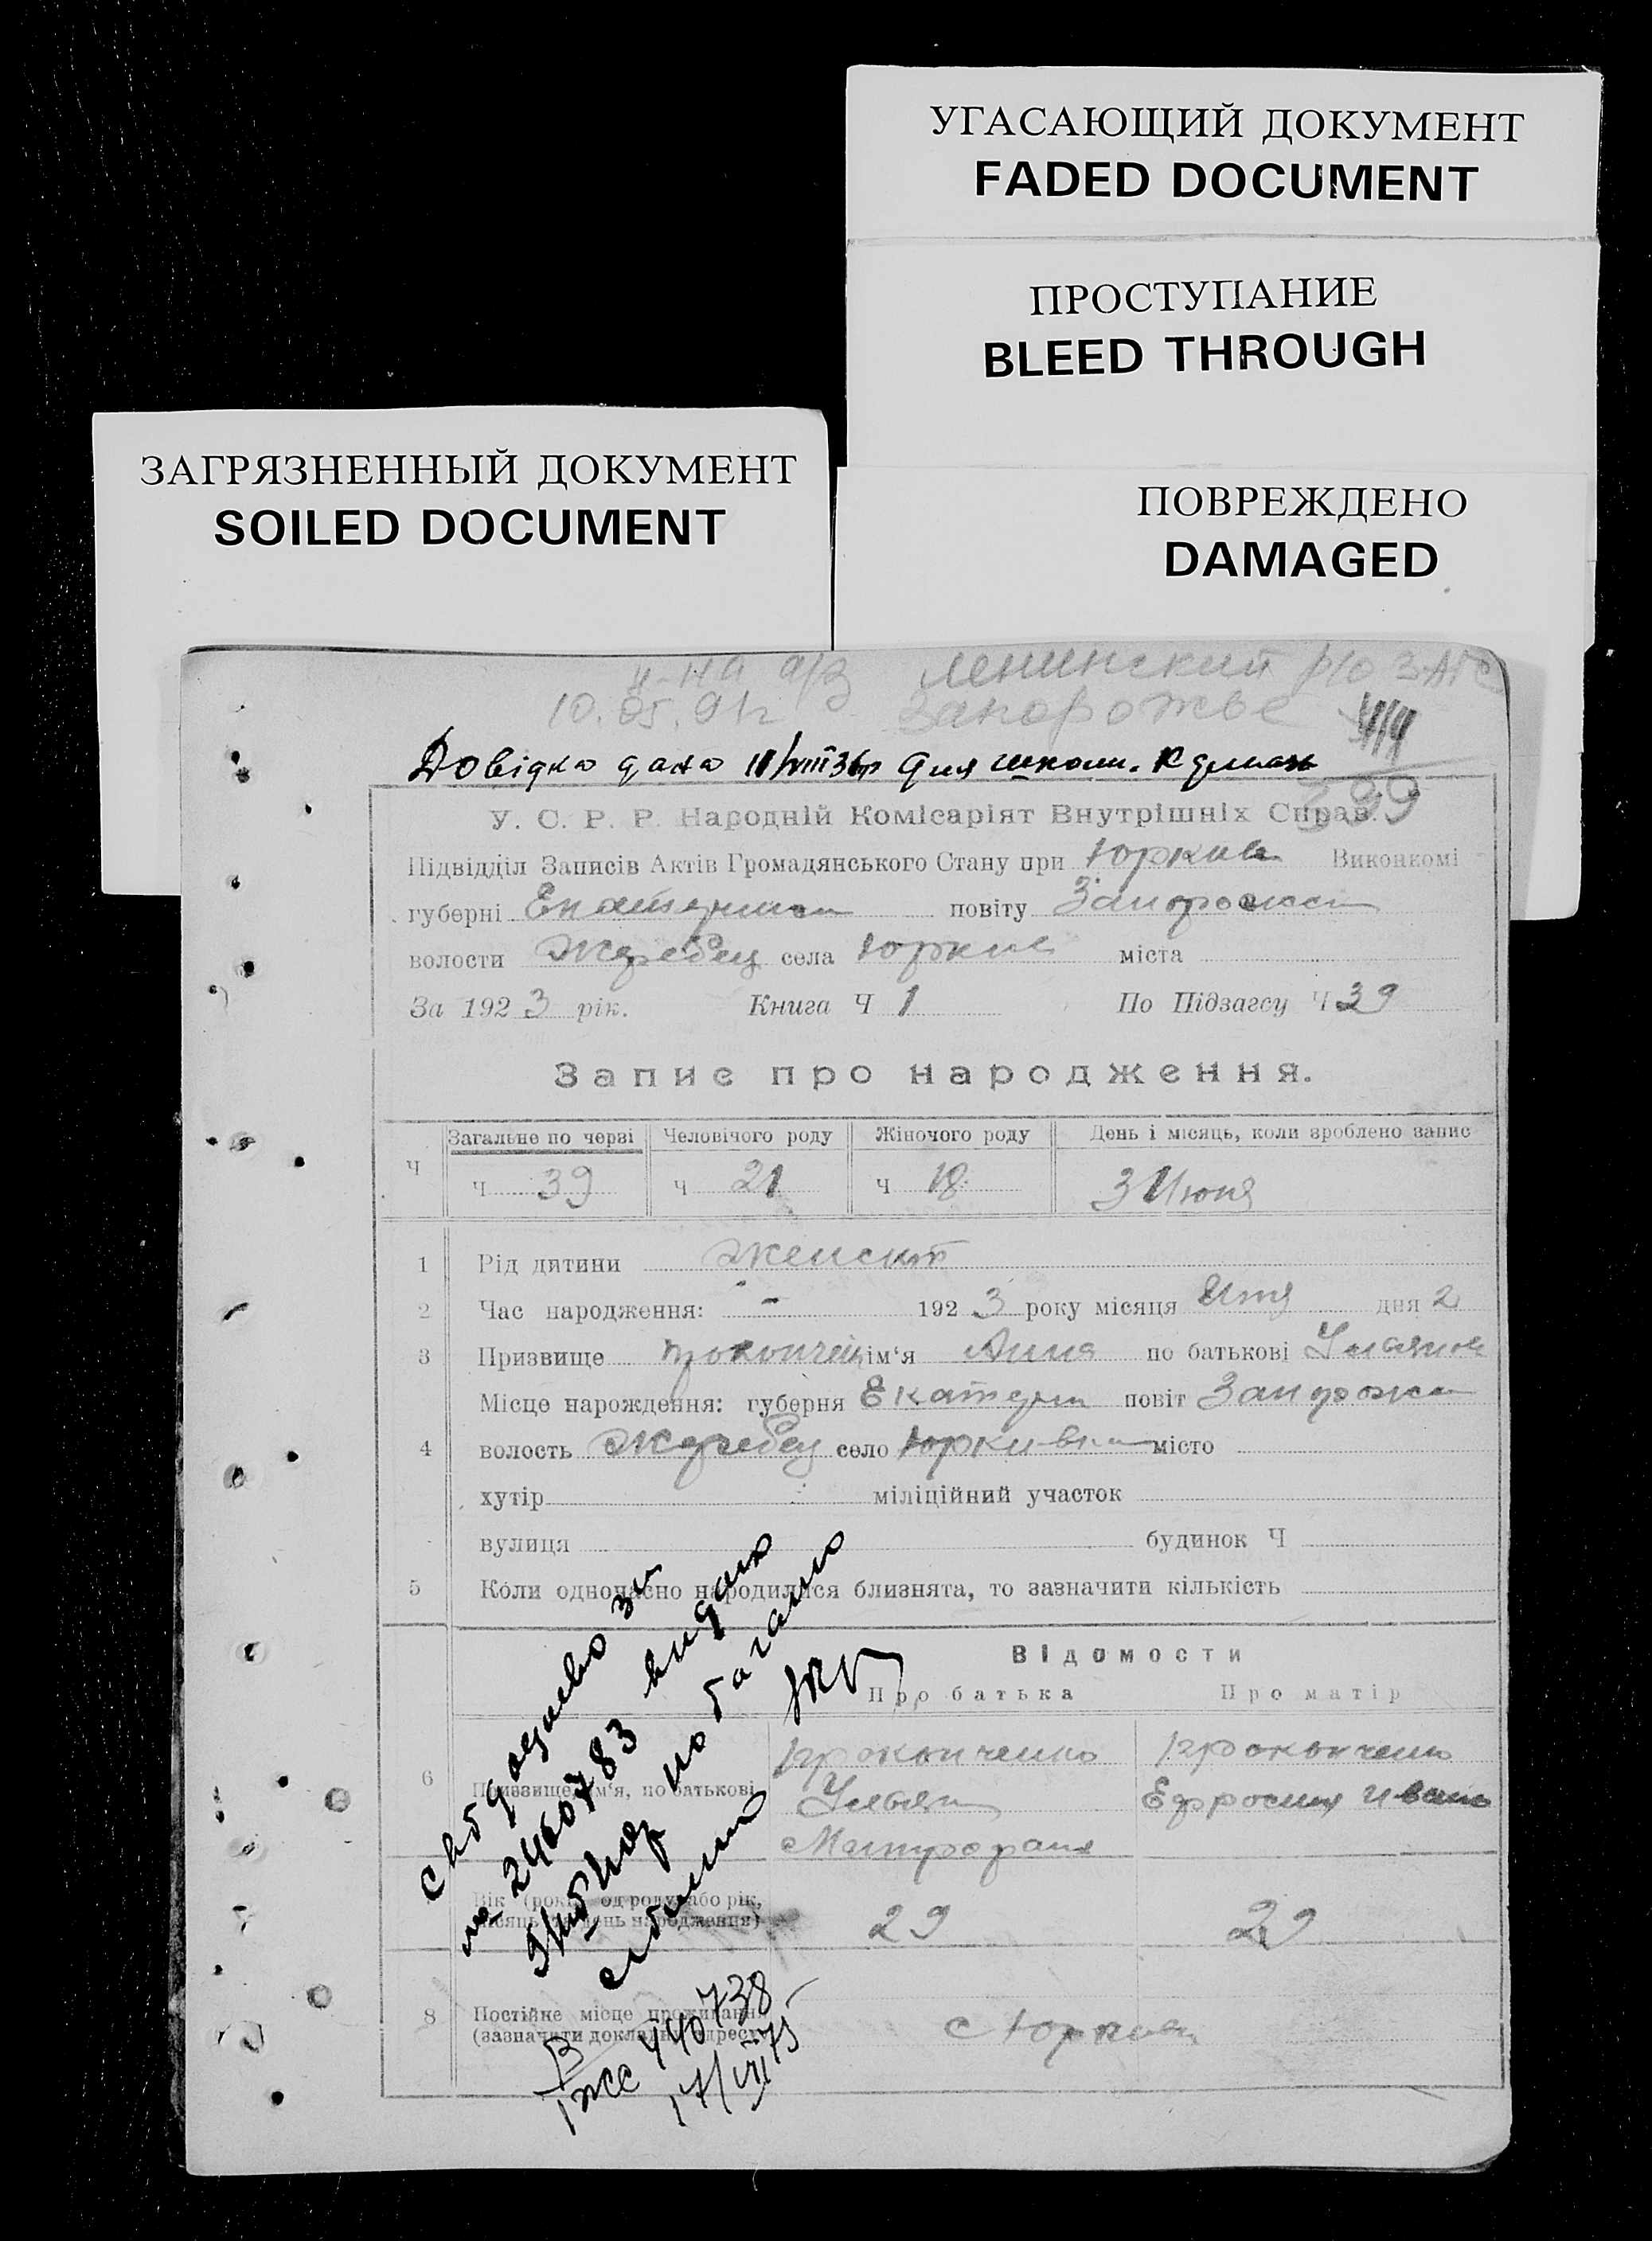 УГАСАЮЩИЙ ДОКУМЕНТ
FADED DOCUMENT
ПРОСТУПАНИЕ
BLEED THROUGH
ЗАГРЯЗНЕННЫЙ ДОКУМЕНТ
SOILED DOCUMENT
ПОВРЕЖДЕНО
DAMAGED
Ленинский р/о ЗАГС
10.05.91г Запорожье
Довідка дана для школи.
399
У. С. Р. Р. Народній Комісаріят Внутрішніх Справ.
Підвідділ Записів Актів Громадянського Стану при Юркив Виконкомі
губерні повіту
волости Жеребец села Юркив міста
За 1923 рік. Книга Ч 1 По Підзагсу Ч 39
Запис про народження.
Ч Загальне по черзі Человічого роду Жіночого роду День і місяць, коли зроблено запис
Ч 39 Ч 21 Ч 18 3 Июня
1 Рід дитини женский
2 Час народження: - 1923 року місяця дня 2
3 Призвище ім‘я Анна по батькові
Місце нарождення: губерня Екатерин повіт Запорожск
4 волость Жеребец село Юркивка місто
хутір міліційний участок
вулиця будинок Ч
5 Коли одночасно народилися близнята, то зазначити кількість
Відомости
Про батька Про матір
6 Призвище, ім‘я, по батькові
Прокопченко
Ульян
Митрофан
Прокопченко
Ефросиния Иван
Вік (років од роду або рік, місяць і день народження) 29 29
8 Постійне місце проживання
(зазначити докладну адресу) с Юркив
свідоцтво
2460783 видано
по
440738
17/VII 75